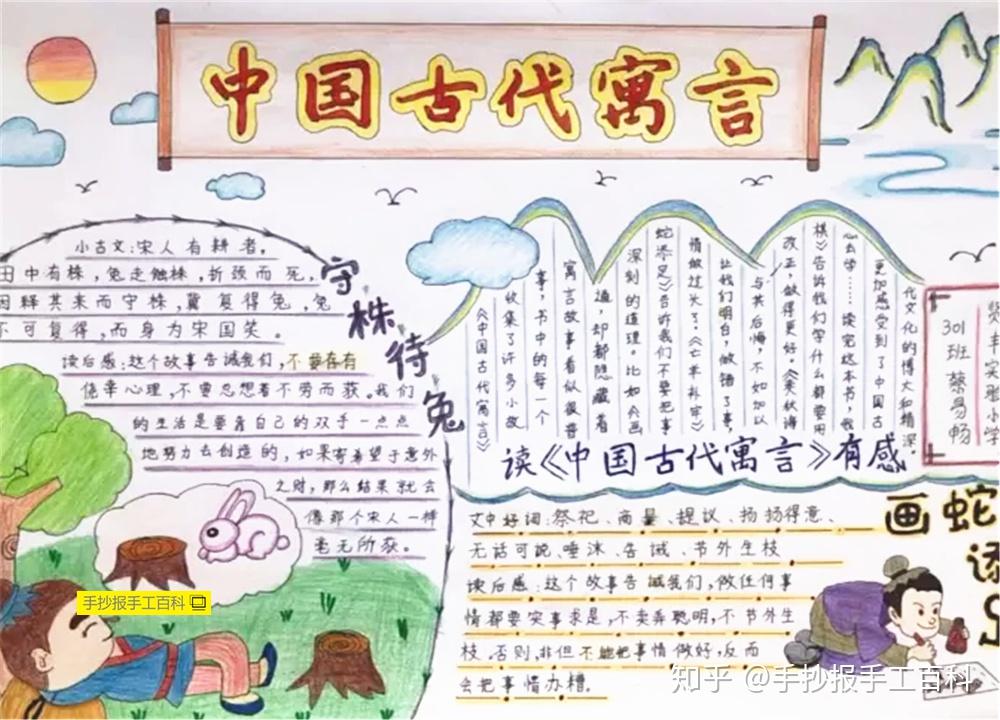 中国古代寓言
小古文:宋人有耕者。
田中有株,兔走触株,折颈而死,
因释其耒而守株,冀复得兔,兔
不可复得,而身为宋国笑。
守株待兔
读后感:这个故事告诫我们,不要存有
侥幸心理,不要总想着不劳而获。我们
的生活是要靠自己的双手一点点
地努力去创造的,如果寄希望于意外
之财,那么结果就会
像那个宋人一样
毫无所获。
手抄报手工百科
《中国古代寓言》
收集了许多小故
事,书中的每一个
寓言故事看似很普
通,却都隐藏着
深刻的道理。比如《画
蛇添足》告诉我们不要把事
情做过头了。《亡羊补牢》
让我们明白,做错了事,
与其后悔,不如加以
改正,做得更好。《学弈》
棋》告诉我们学什么都要用
心去学……读完这本书,我
更加感受到了中国古
代文化的博大和精深。
读《中国古代寓言》有感
实验小学
301班
蔡易畅
画蛇添足
文中好词:祭祀、商量、提议、扬扬得意、
无话可说、唾沫、告诫、节外生枝
读后感:这个故事告诫我们,做任何事
情都要实事求是,不卖弄聪明,不节外生
枝。否则,非但不能把事情做好,反而
会把事情办糟。
知乎 @手抄报手工百科